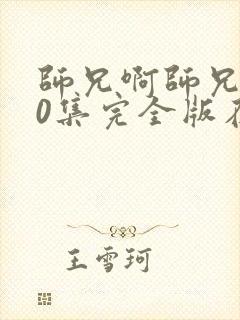 師兄啊師兄
0集完全版在
王雪珂